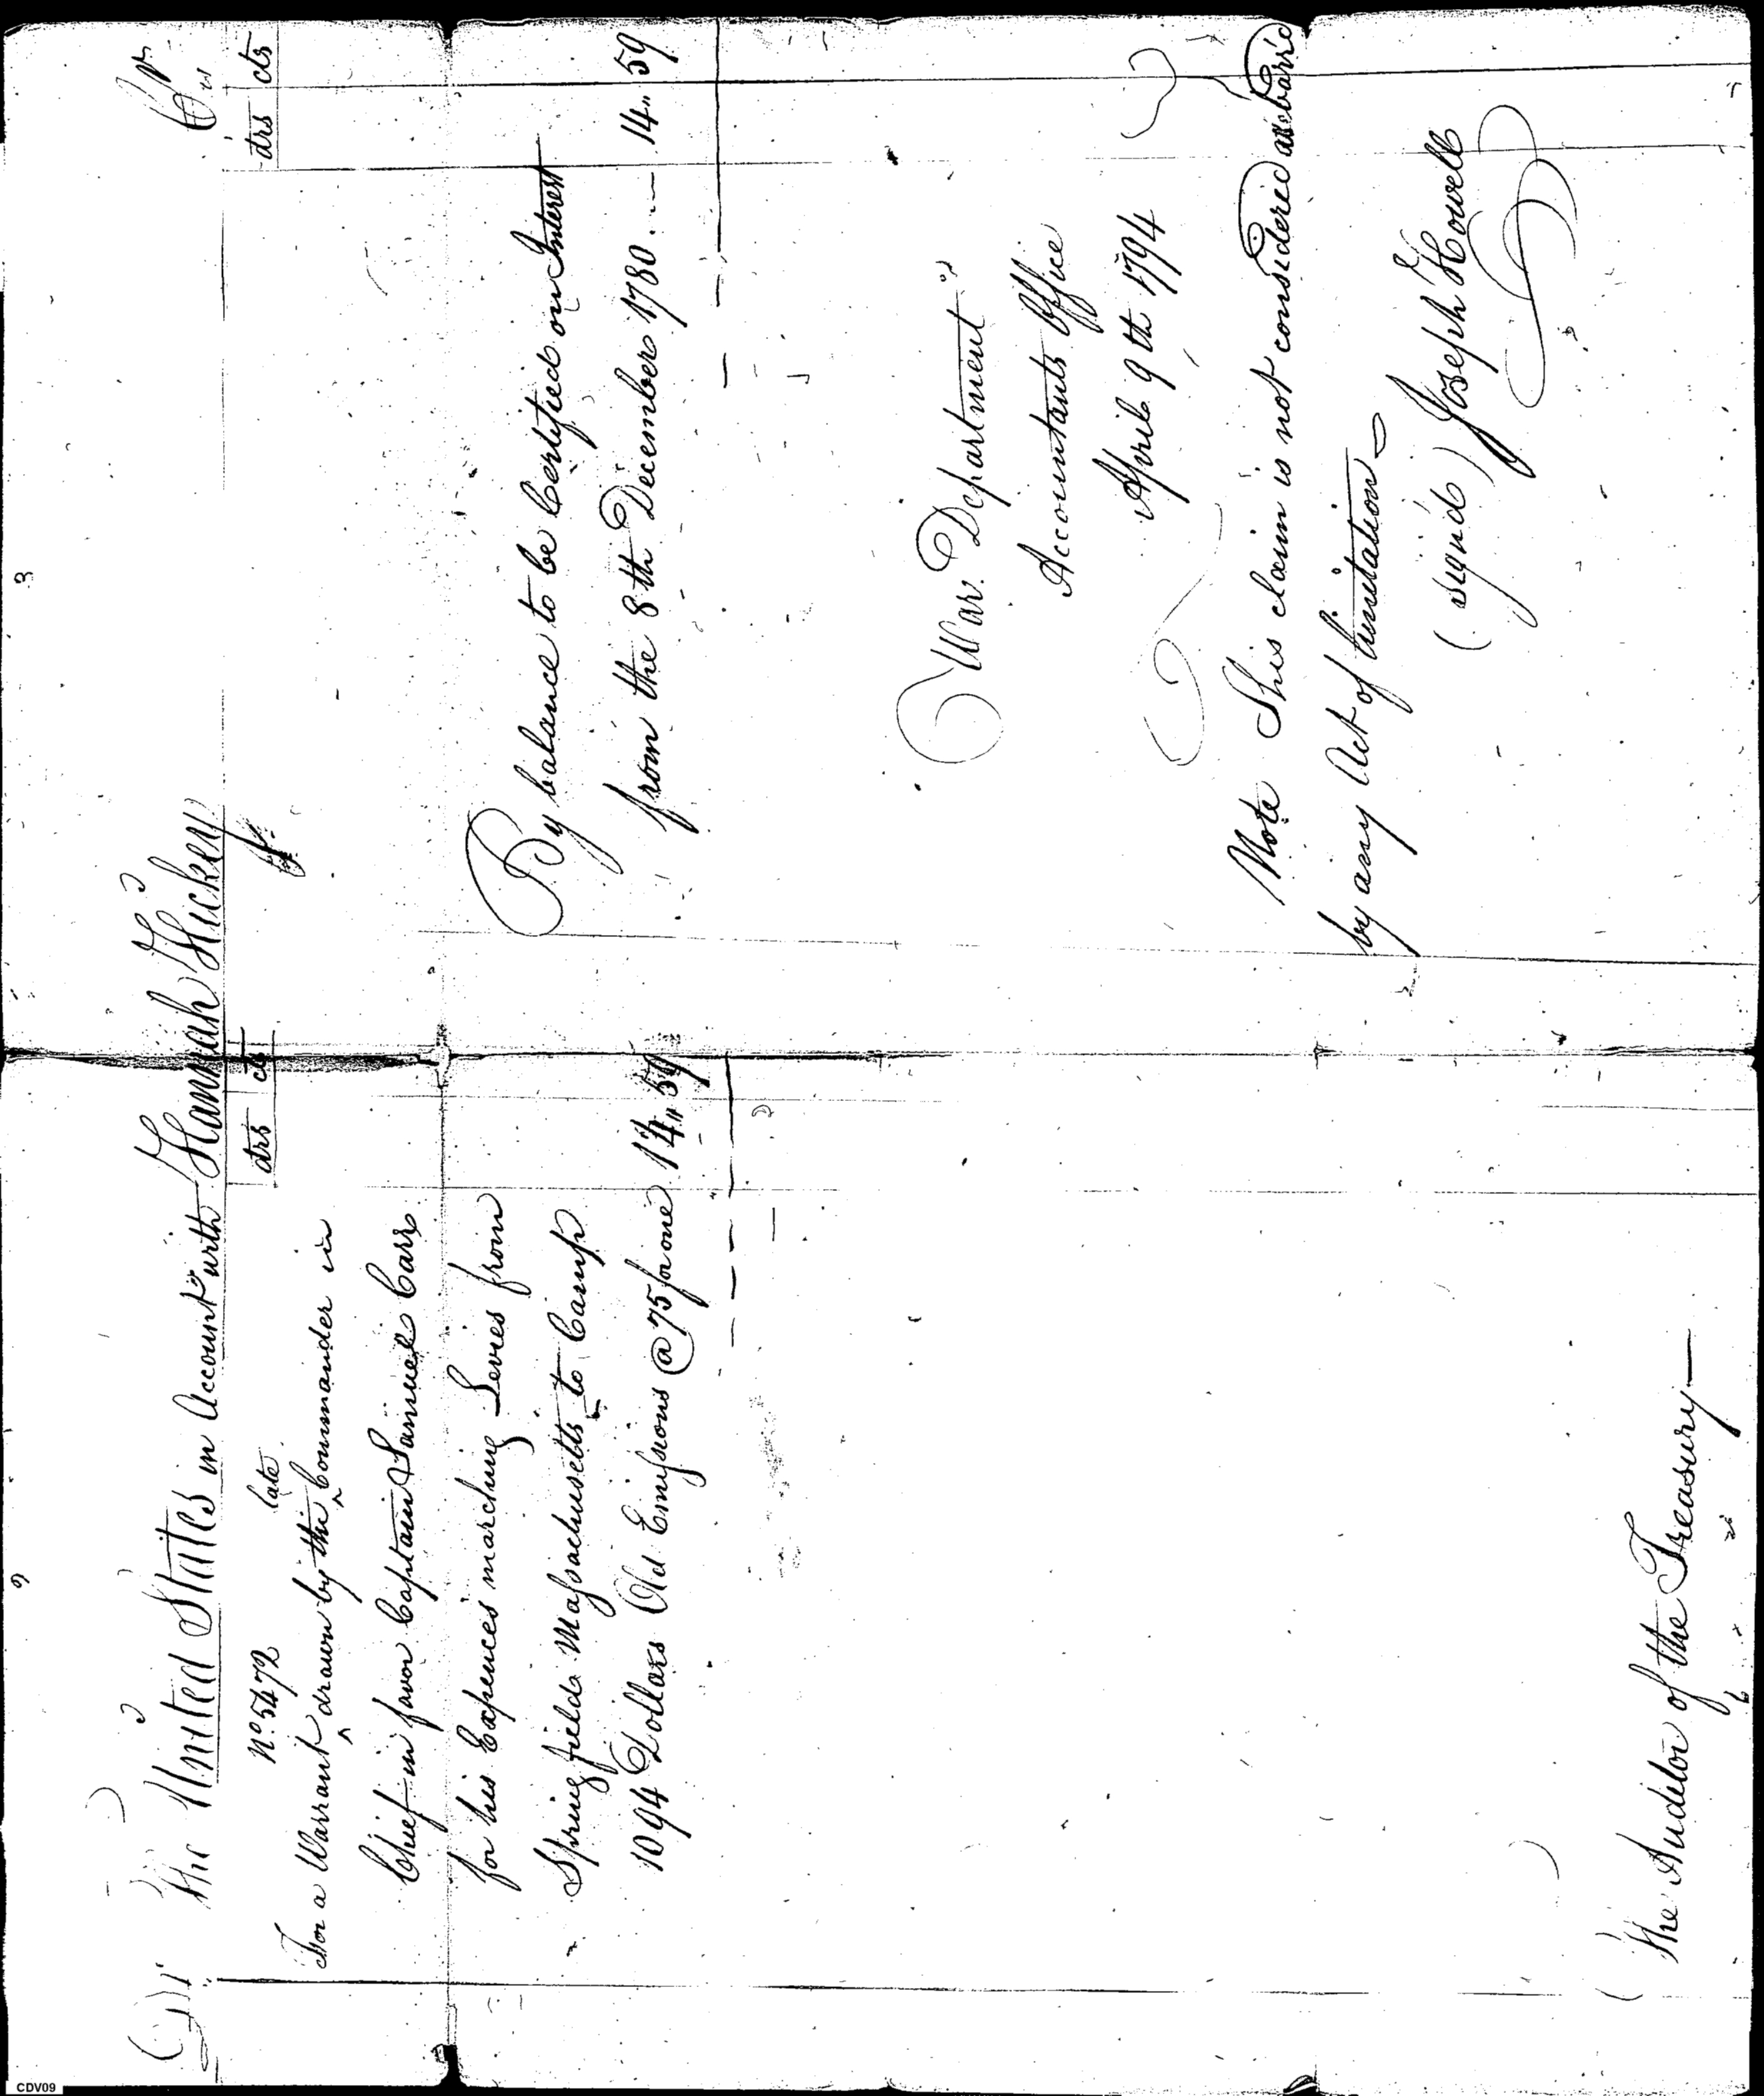 Dr The United States in Account with Hannah Hickey Cr
drs cts
No. 5472 late
For a Warrant ^ drawn by the ^ Commander in
Chief in favor Captain Samuel Carr
for his Expences marching Levies from
Springfield Massachusetts to Camp
1094 Dollars Old Emissions @ 75 for one 14,, 59
The Auditor of the Treasury
drs cts
By balance to be Certified on Interest
from the 8th December 1780. — 14,, 59
War Department
Accountants Office
April 9th 1794
Note This claim is not considered as barrd
by any Act of limitation
(signd) Joseph Howell
9
3
CDV09